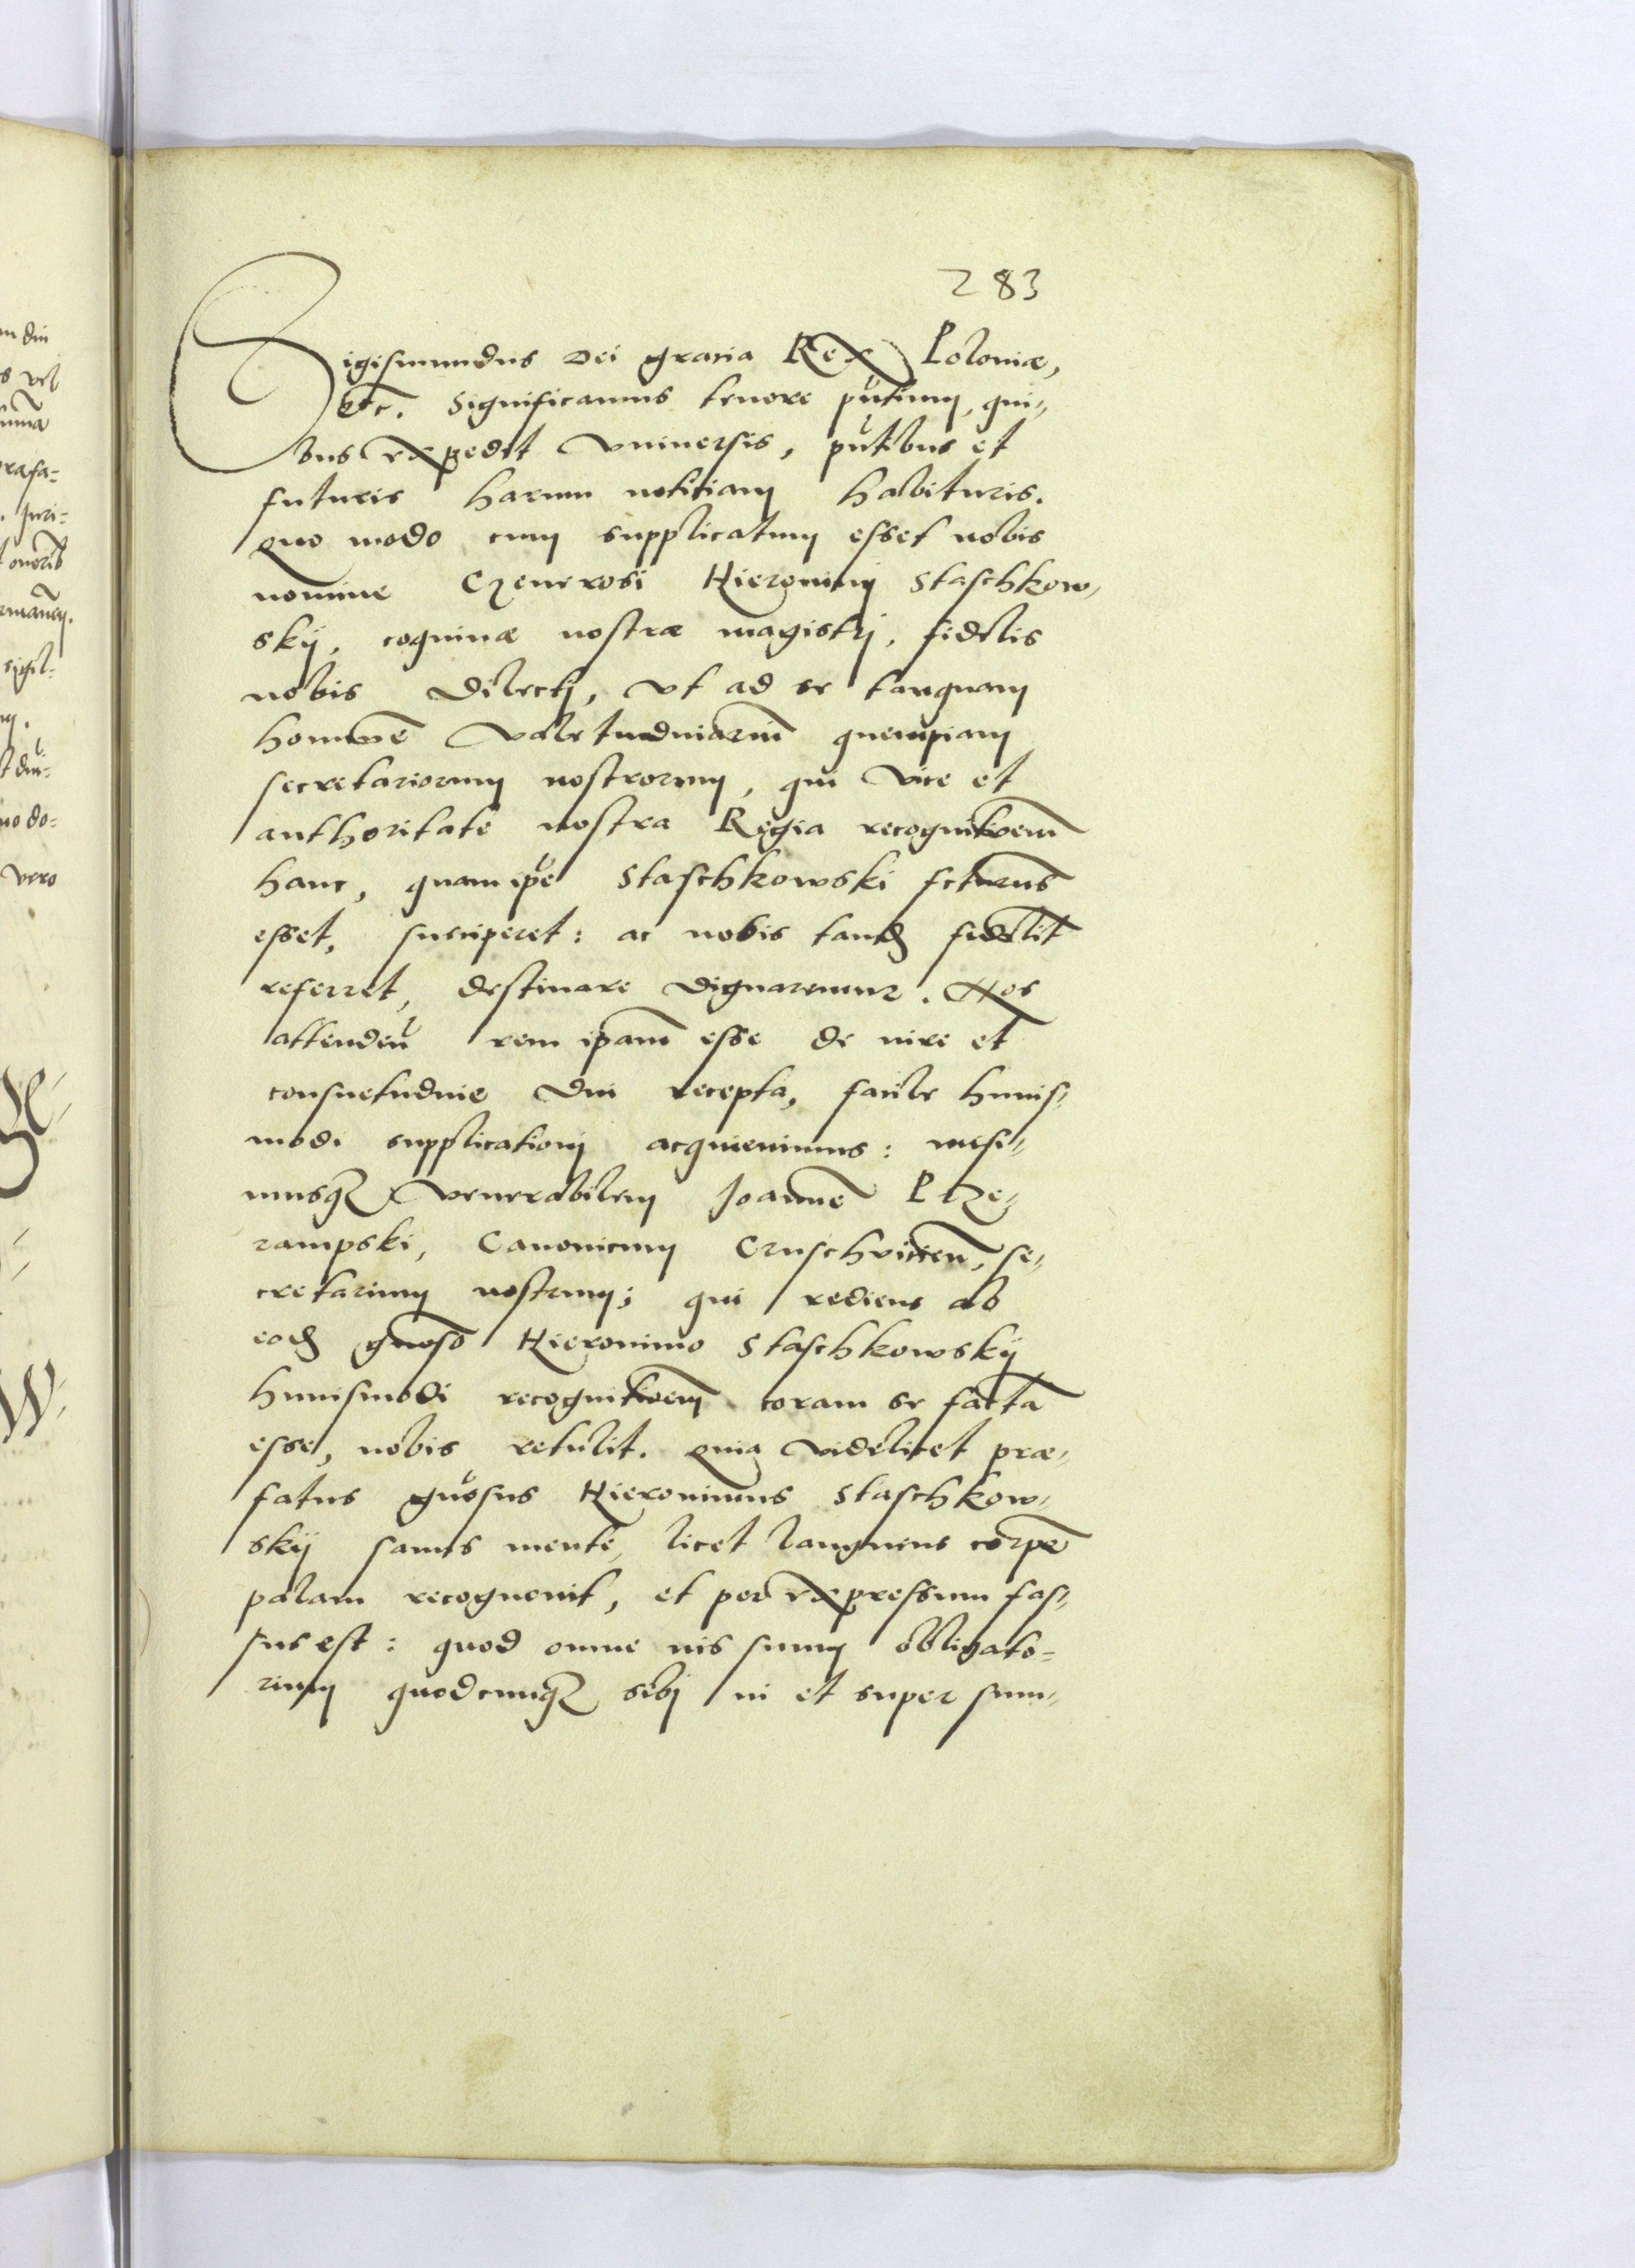 283
Sigismundus Dei gratia Rex Poloniæ,
etc. Significamus tenore pñtium, qui-
bus expedit vniuersis, pñtibus et
futuris harum notitiam habituris.
Quo modo cum supplicatum esset nobis
nomine Generosi Hieronimj Staschkow-
skij, coquinæ nostræ magistrj, fidelis
nobis dilectj, vt ad se tanquam
hominẽ valetudinariũ quempiam
secretariorum nostrorum, qui vice et
authoritate nostra Regia recognitioem̃
hanc, quam ipẽ Staschkowski fcturus̃
esset, susciperet: ac nobis tandẽ fidelit̃
referret, destinare dignaremur. Nos
attendeñ rem ipam̃ esse de iure et
consuetudine diu recepta, facile huius-
modi supplicationj acquieuimus: misi-
musq Venerabilem Joannẽ Prze-
rampski, Canonicum Cruschvicieñ, se-
cretarium nostrum; qui rediens ab
eodẽ gnoso Hieronimo Staschkowskij
huiusmodi recognitioem̃ coram se factã
esse, nobis retulit. Quia videlicet præ-
fatus gñosus Hieronimus Staschkow-
skij sanus mente, licet languens corpẽ
palam recognouit, et per expressum fas-
sus est: quod omne ius suum obligato-
rium quodcunq sibj in et super sum-